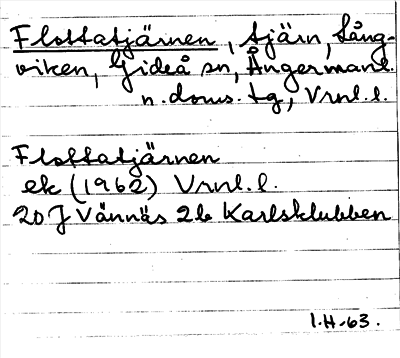 Flottatjärnen, tjärn, Lång-
viken, Gideå sn, Ångermanl.
n. doms. tg, Vrnl. l.
Flottatjärnen
ek (1962) Vrnl. l.
20 J Vännäs 2b Karlsklubben
1.H.63.